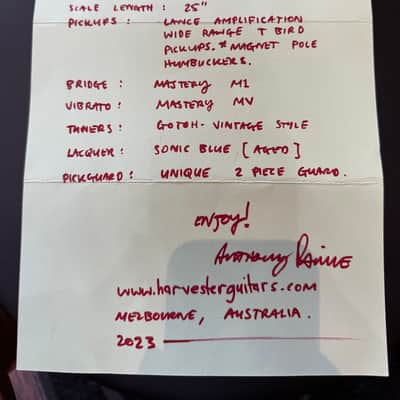 SCALE LENGTH : 25"
PICKUPS : LANCE AMPLIFICATION
WIDE RANGE T BIRD
PICKUPS. * MAGNET POLE
HUMBUCKERS.
BRIDGE : MASTERY M1
VIBRATO : MASTERY MV
TUNERS : GOTOH - VINTAGE STYLE
LACQUER : SONIC BLUE [AGED]
PICKGUARD : UNIQUE 2 PIECE GUARD.
ENJOY!
ANTHONY
www.harvesterguitars.com
MELBOURNE, AUSTRALIA.
2023